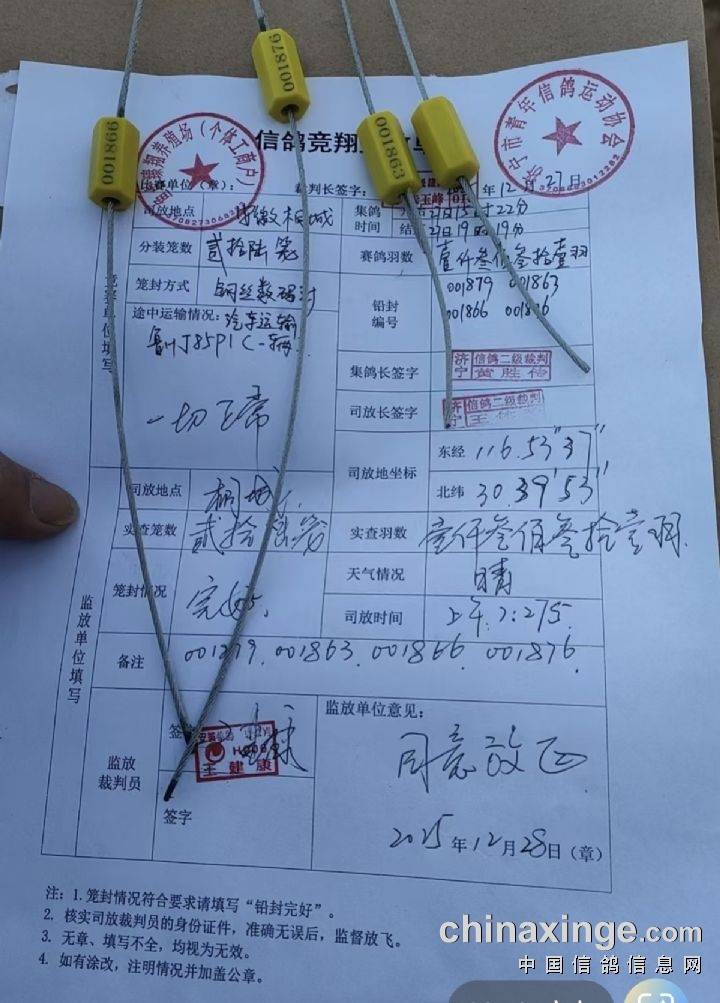 001876
001866
001863
信鸽竞翔
翔养殖场（个体工商户）
济宁市青年信鸽运动协会
单位（章）：
裁判长签字：
年12月27日
竞赛单位填写
司放地点
安徽桐城
集鸽时间
27日15时22分
结
27日19时19分
分装笼数
贰拾陆笼
赛鸽羽数
壹仟叁佰叁拾壹羽
笼封方式
钢丝数码封
铅封编号
001879 001863
001866 001876
途中运输情况：汽车运输
一切正常
集鸽长签字
济宁 信鸽二级裁判
黄胜伟
司放长签字
济宁 信鸽二级裁判
王
司放地坐标
东经
116.53"37"
北纬
30.39'53"
监放单位填写
司放地点
桐城
实查笼数
贰拾陆笼
实查羽数
壹仟叁佰叁拾壹羽
笼封情况
完好
天气情况
晴
司放时间
上午7:27
备注
001863. 001866. 001876.
监放裁判员
王建康
签字
监放单位意见：
同意放飞
2025年12月28日（章）
注：1. 笼封情况符合要求请填写“铅封完好”。
2. 核实司放裁判员的身份证件，准确无误后，监督放飞。
3. 无章、填写不全，均视为无效。
4. 如有涂改，注明情况并加盖公章。
chinaxinge.com
中国信鸽信息网